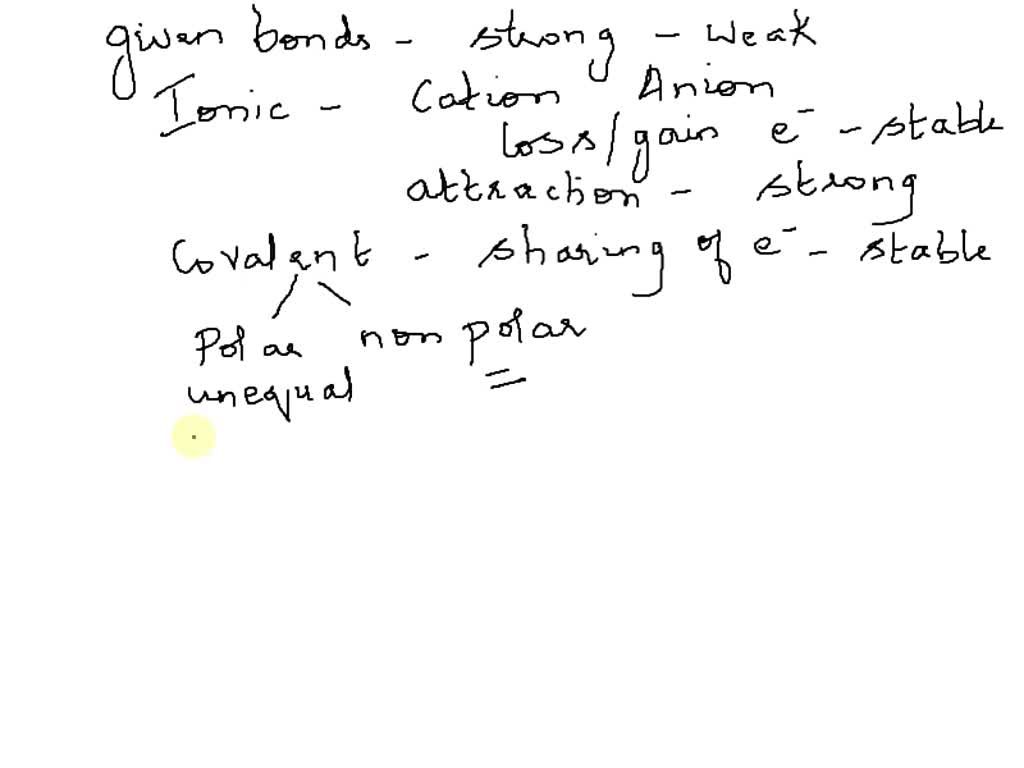 given bonds - strong - weak
Ionic - Cation Anion
loss/gain e⁻ - stable
attraction - strong
Covalent - sharing of e⁻ - stable
Polar non polar
unequal =